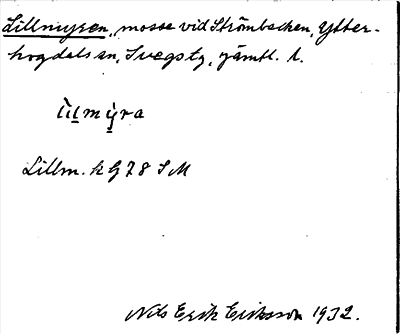 Lillmyren, mosse vid Strömbacken, Ytter-
hogdals sn, Svegs tg, Jämtl. l.
Lillm. k G 78 SM
Nils Erik Eriksson 1932.